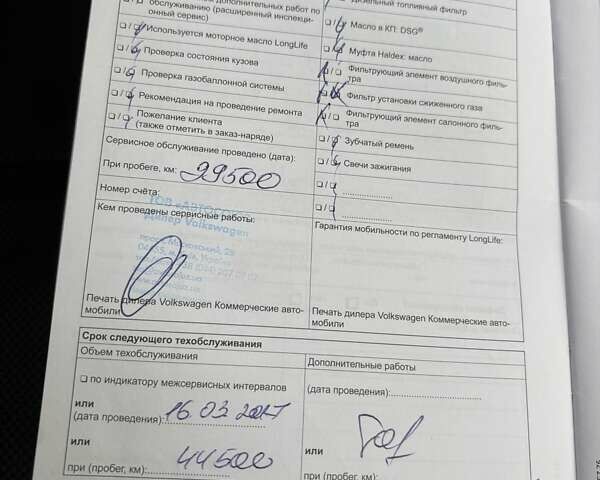 дополнительных работ по
обслуживанию (расширенный инспекци-
онный сервис)
Используется моторное масло LongLife
Проверка состояния кузова
Проверка газобаллонной системы
Рекомендация на проведение ремонта
Пожелание клиента
(также отметить в заказ-наряде)
Сервисное обслуживание проведено (дата):
При пробеге, км: 29500
Номер счёта:
Кем проведены сервисные работы:
ТОВ «АВТОСО
Дилер Volkswagen
Печать дилера Volkswagen Коммерческие авто-
мобили
Дизельный топливный фильтр
Масло в КП: DSG®
Муфта Haldex: масло
Фильтрующий элемент воздушного филь-
тра
Фильтр установки сжиженного газа
Фильтрующий элемент салонного филь-
тра
Зубчатый ремень
Свечи зажигания
Гарантия мобильности по регламенту LongLife:
Печать дилера Volkswagen Коммерческие авто-
мобили
Срок следующего техобслуживания
Объем техобслуживания
по индикатору межсервисных интервалов
или
(дата проведения): 16.03.2017
или
при (пробег, км): 44500
Дополнительные работы
(дата проведения):
или
при (пробег, км):